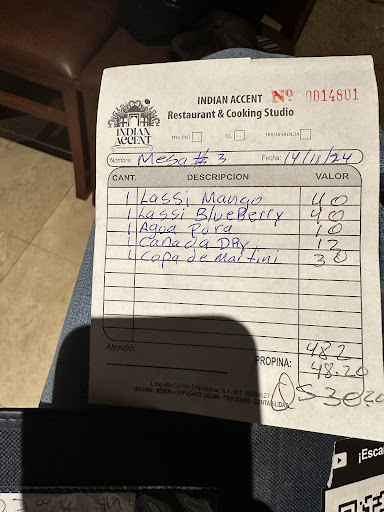 INDIAN ACCENT Nº 0014801
Restaurant & Cooking Studio
INDIAN
ACCENT
EFECTIVO T.C. TRANSFERENCIA
Nombre: Mesa # 3 Fecha: 14/11/24
CANT. DESCRIPCION VALOR
1 Lassi Mango 40
1 Lassi BlueBerry 40
1 Agua Pura 10
1 Canada DRy 12
1 Copa de Martini 30
Atendió:
482
PROPINA: 48.20
530.20
ORIGINAL: MESERO • DUPLICADO: COCINA • TRIPLICADO: CONTABILIDAD
¡Esca